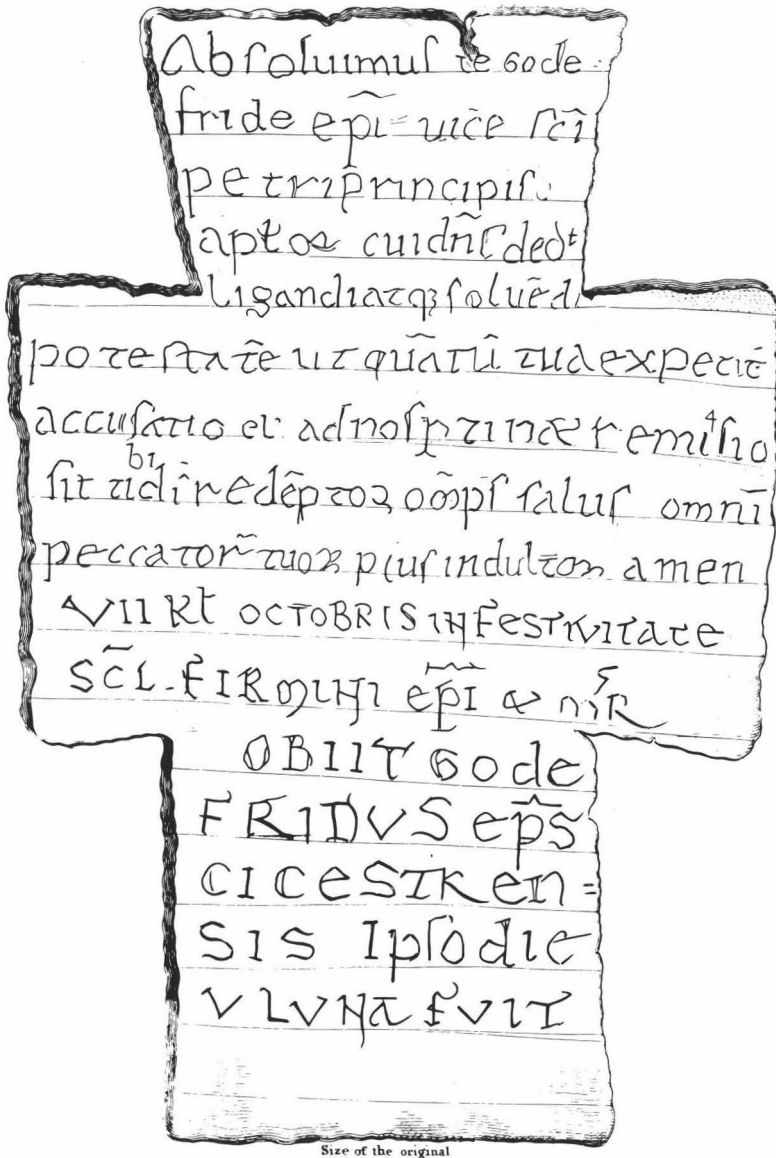 Absoluimus te Gode-
fride ep̄i = uicē sc̄i
petri p̄rincipis
ap̄tos cui dn̄s ded^t
ligandi atq; soluēdi
potestatē ut quātū tua expetit
accusatio et ad nos ptinæt remissio
sit tibi dī redēptor om̄ps salus omnī
peccator tuoꝝ pius indultor amen
VII Kł OCTOBRIS IN FESTIVITATE
SC̄I. FIRMINI ep̄I & MR
OBIIT Gode
FRIDVS ep̄s
CICESTREN=
SIS IpsO die
V LVNA FVIT
Size of the original